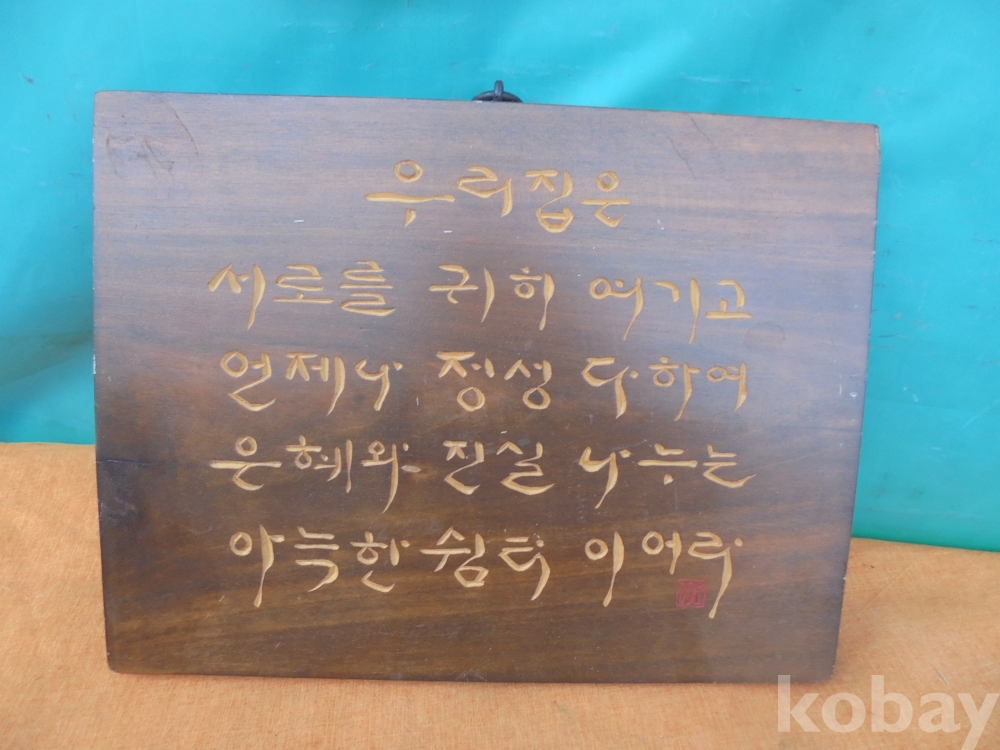 우리집은
서로를 귀히 여기고
언제나 정성 다하여
은혜와 진실 나누는
아늑한 쉼터 이어라
kobay